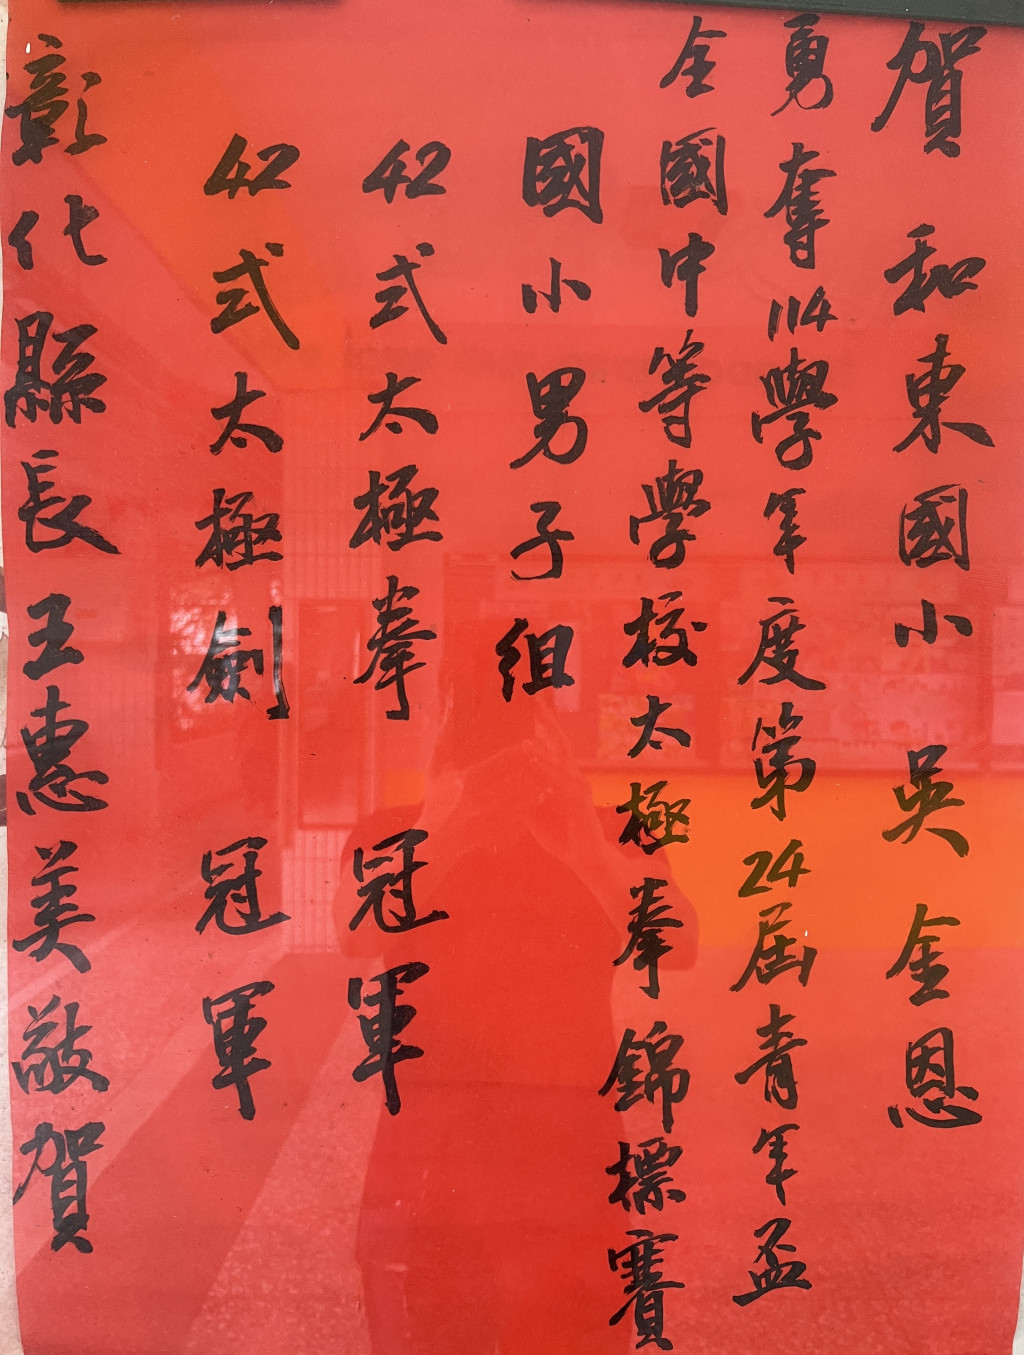 賀 和東國小 吳金恩
勇奪114學年度第24屆青年盃
全國中等學校太極拳錦標賽
國小男子組
42式太極拳 冠軍
42式太極劍 冠軍
彰化縣長王惠美敬賀